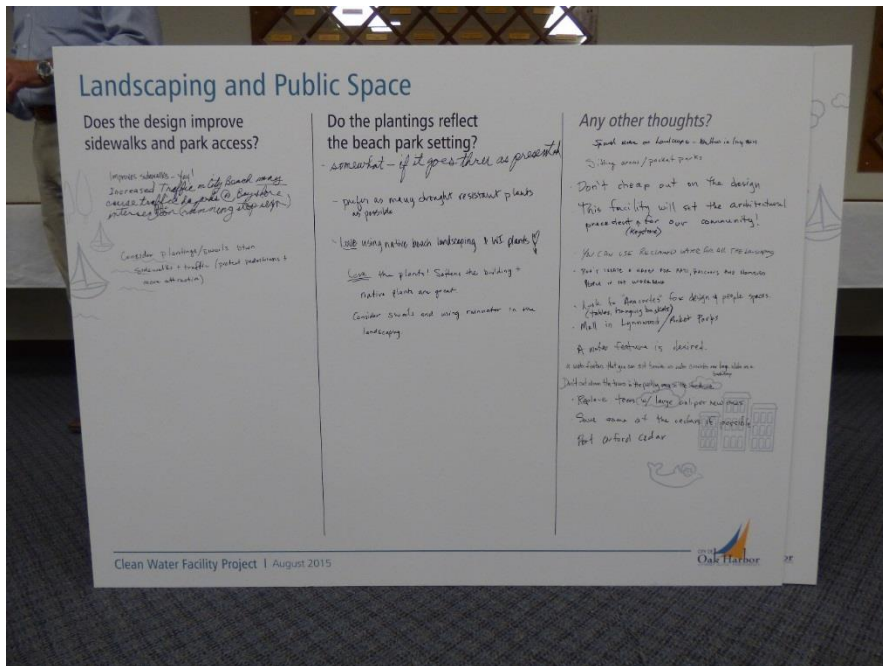 Landscaping and Public Space
Does the design improve
sidewalks and park access?
Improves sidewalks - Yay!
Increased Traffic on City Beach may
cause traffic @ Bayshore
intersection (running stop sign)
Consider plantings/swails btwn
sidewalks + traffic (protect pedestrians +
more attractive)
Do the plantings reflect
the beach park setting?
- somewhat - if it goes thru as presented
- prefer as many drought resistant plants
as possible
- Love using native beach landscaping & WI plants
Love the plants! Softens the building +
native plants are great.
Consider swails and using rainwater in the
landscaping.
Any other thoughts?
Sitting areas/pocket parks
- Don't cheap out on the design
- This facility will set the architectural
precedent for our community!
(Keystone)
- You can use reclaimed water for all the
- Look to "Anacortes" for design of people spaces
(tables, hanging baskets)
- Mall in Lynnwood / Pocket Parks
A water feature is desired.
a water feature that you can sit
Don't cut down the trees in the parking
- Replace trees w/ large caliper new trees
Save some of the cedars if possible
Port orford cedar
Clean Water Facility Project | August 2015
CITY OF
Oak Harbor